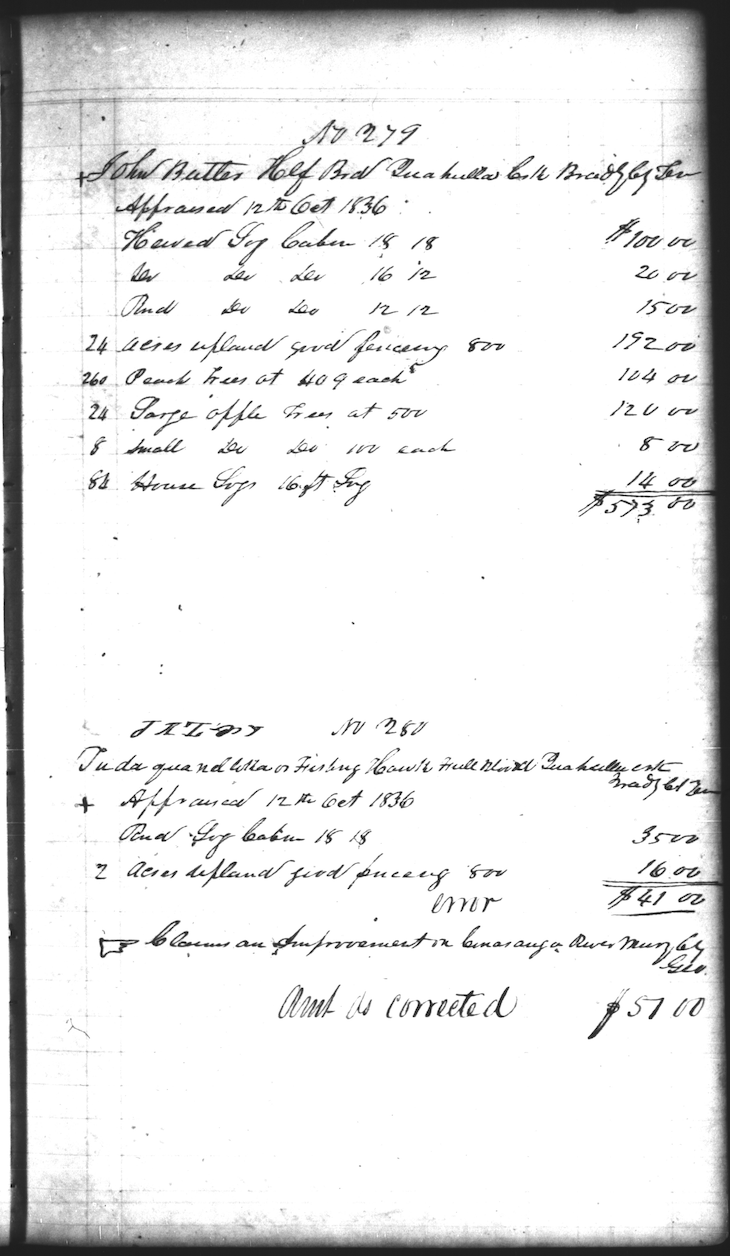 No 279
John Butler Hlf Brd Quahulla Crk Bradly Cy Ten
Appraised 12th Oct 1836
Hewed Log Cabin 18 18 $100 00
Do Do Do 16 12 20 00
Rnd Do Do 12 12 15 00
24 Acres upland good fenceing 800 192 00
260 Peach trees at 40 each 104 00
24 Large apple trees at 500 120 00
8 small Do Do 100 each 8 00
84 House Logs 16 ft Log 14 00
$573 00
No 280
or Fishing Hawk Full Blood Quahulla crk
Bradly Ct Ten
+ Appraised 12th Oct 1836
Rnd Log Cabin 18 18 35 00
2 Acres upland good fenceing 800 16 00
error $41 00
Claims an Improvement on Conasauga River Mury Cty
Geo.
Amt as corrected $51 00